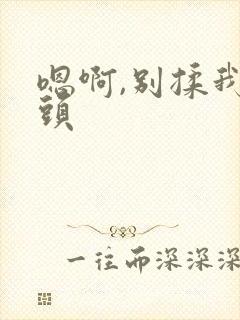 嗯啊,别揉我
頭
一往而深深深